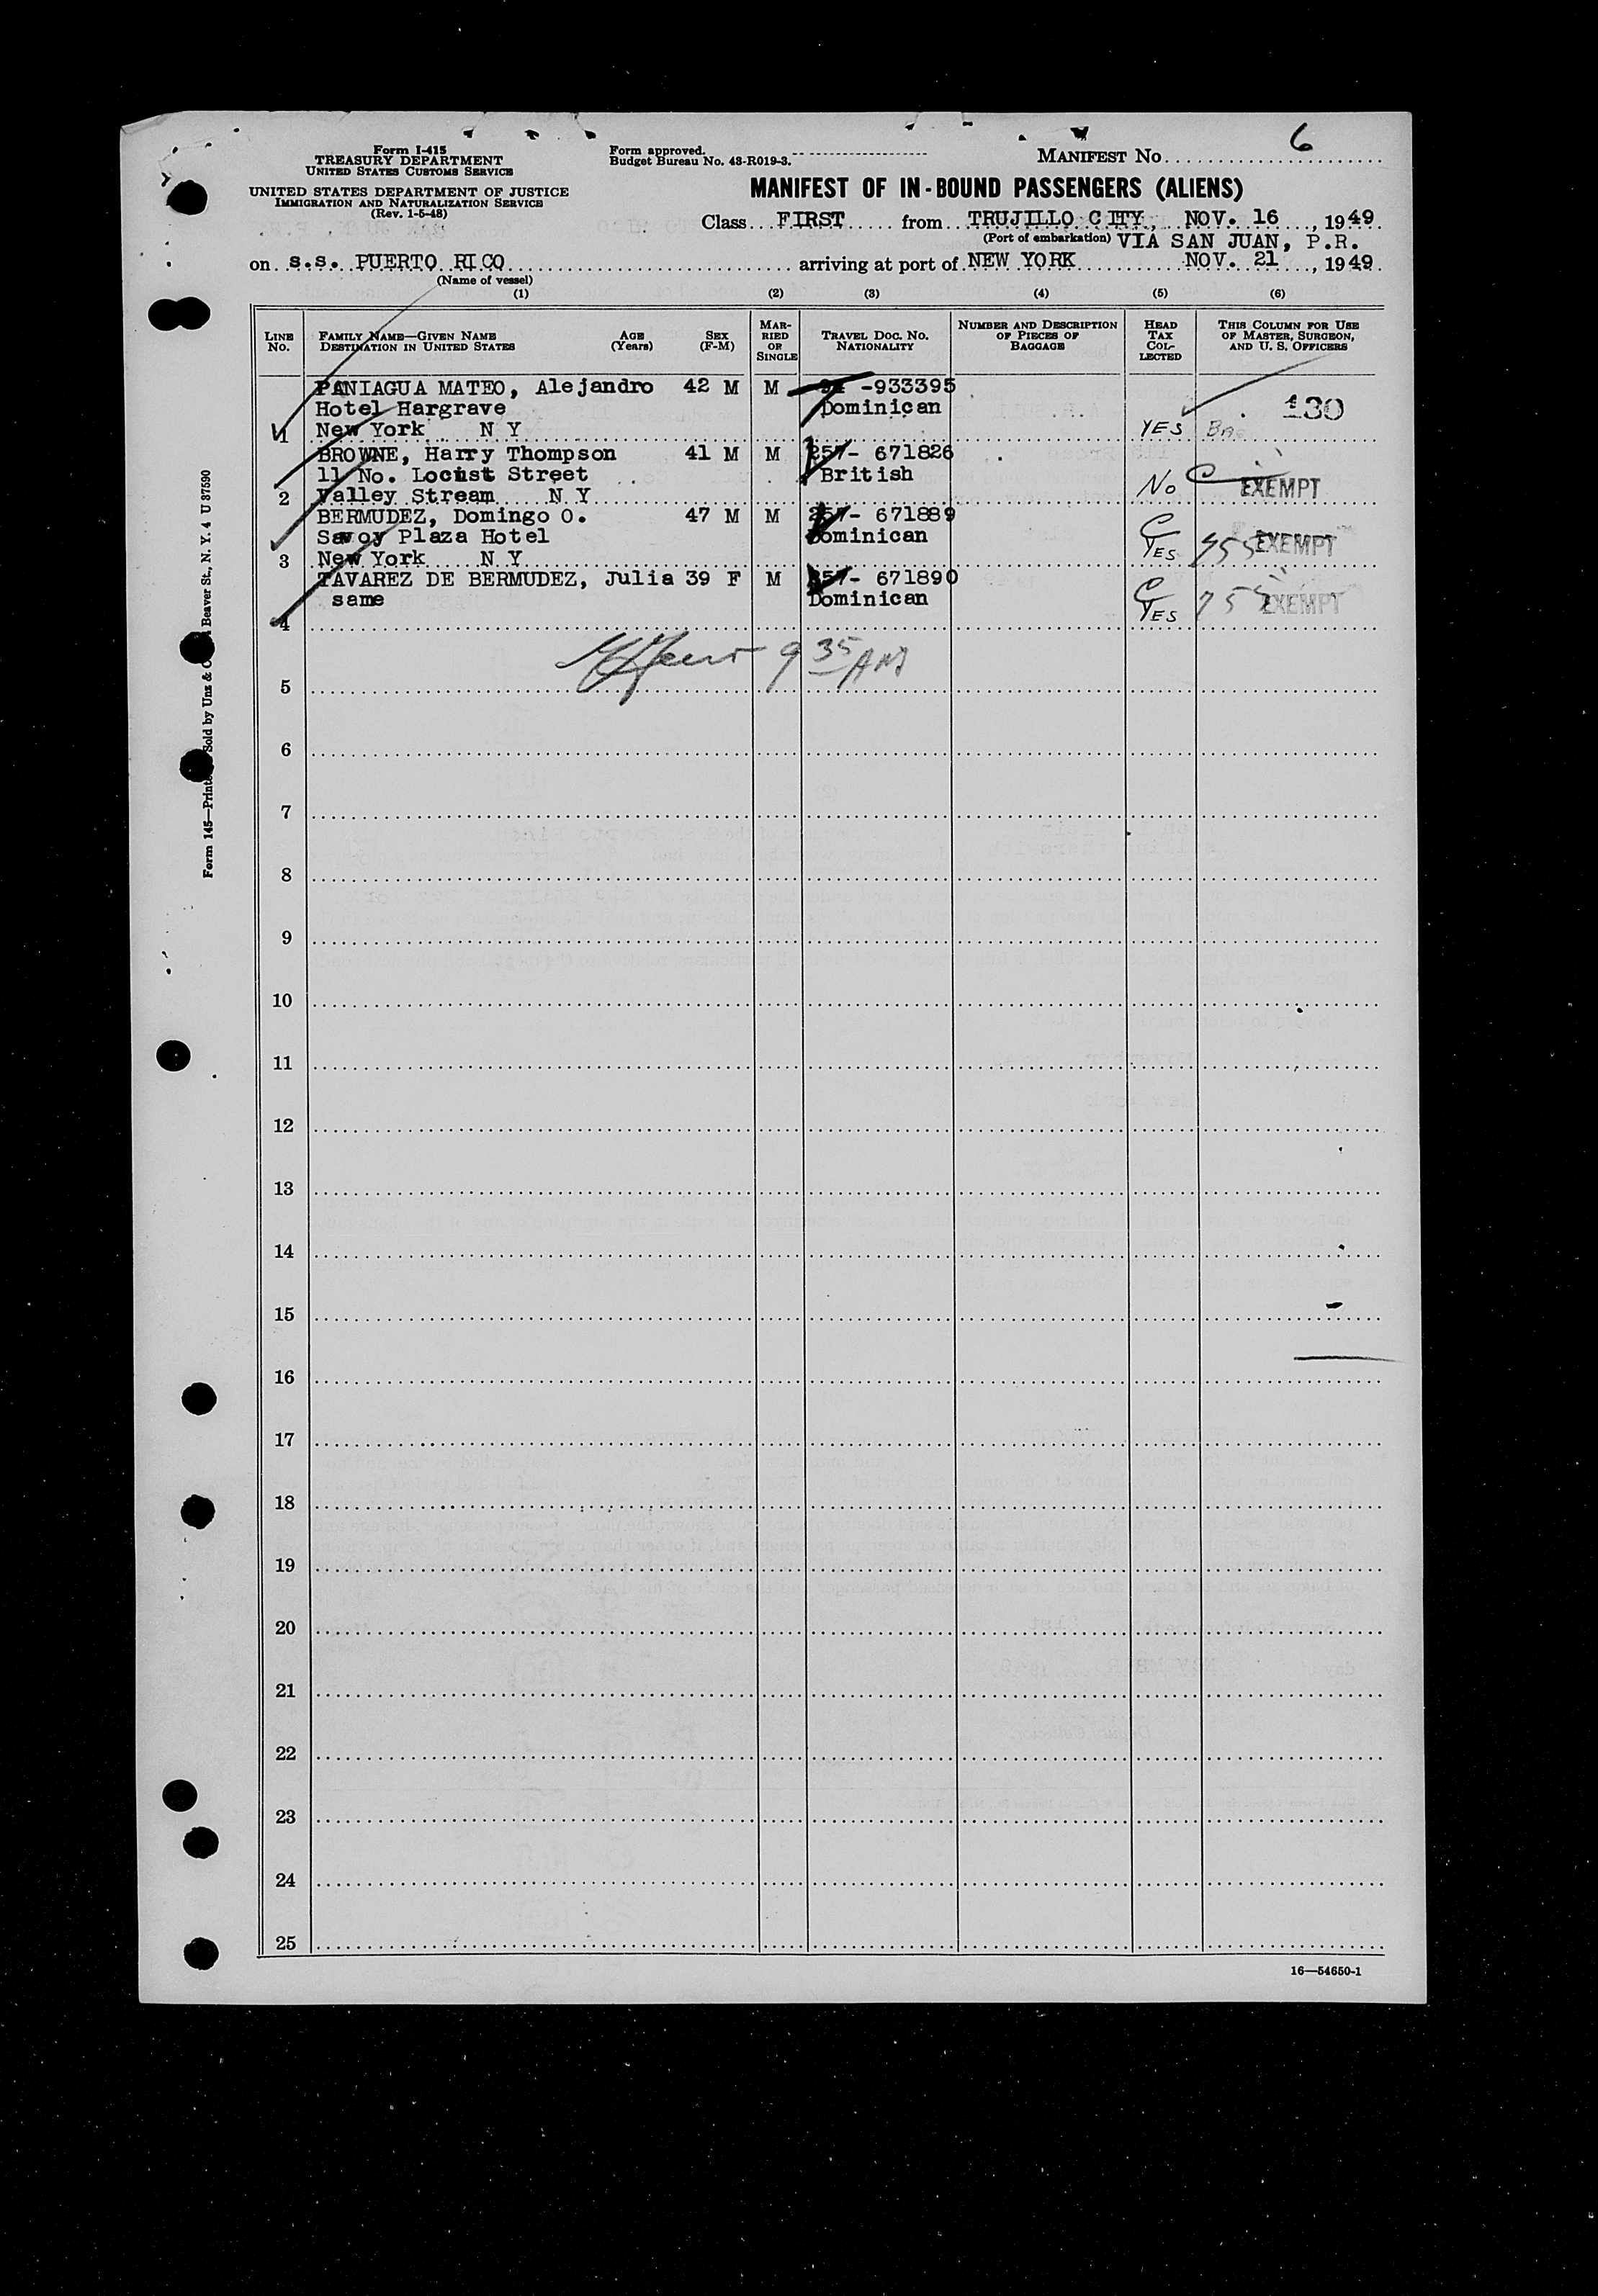 6
Form I-415
TREASURY DEPARTMENT
UNITED STATES CUSTOMS SERVICE
UNITED STATES DEPARTMENT OF JUSTICE
IMMIGRATION AND NATURALIZATION SERVICE
(Rev. 1-5-48)
Form approved.
Budget Bureau No. 43-R019-3.
MANIFEST No.
MANIFEST OF IN-BOUND PASSENGERS (ALIENS)
Class FIRST from TRUJILLO CITY, NOV. 16, 1949
(Port of embarkation) VIA SAN JUAN, P.R.
on s.s. PUERTO RICO arriving at port of NEW YORK NOV. 21, 1949
(Name of vessel)
(1) (2) (3) (4) (5) (6)
LINE No. FAMILY NAME—GIVEN NAME DESTINATION IN UNITED STATES AGE (Years) SEX (F-M) MARRIED OR SINGLE TRAVEL DOC. NO. NATIONALITY NUMBER AND DESCRIPTION OF PIECES OF BAGGAGE HEAD TAX COLLECTED THIS COLUMN FOR USE OF MASTER, SURGEON, AND U. S. OFFICERS
PANIAGUA MATEO, Alejandro 42 M M -933395
Hotel Hargrave Dominican 130
1 New York N Y YES BAG
BROWNE, Harry Thompson 41 M M 257- 671826
11 No. Locust Street British
2 Valley Stream N Y No C EXEMPT
BERMUDEZ, Domingo O. 47 M M 257- 671889
Savoy Plaza Hotel Dominican C
3 New York N Y YES 755 EXEMPT
TAVAREZ DE BERMUDEZ, Julia 39 F M 257- 671890
same Dominican C
4 YES 755 EXEMPT
9 35 AM
5
6
7
8
9
10
11
12
13
14
15
16
17
18
19
20
21
22
23
24
25
16—54650-1
Form 145—Printed Sold by Unz & Co Beaver St., N. Y. 4 U 37590